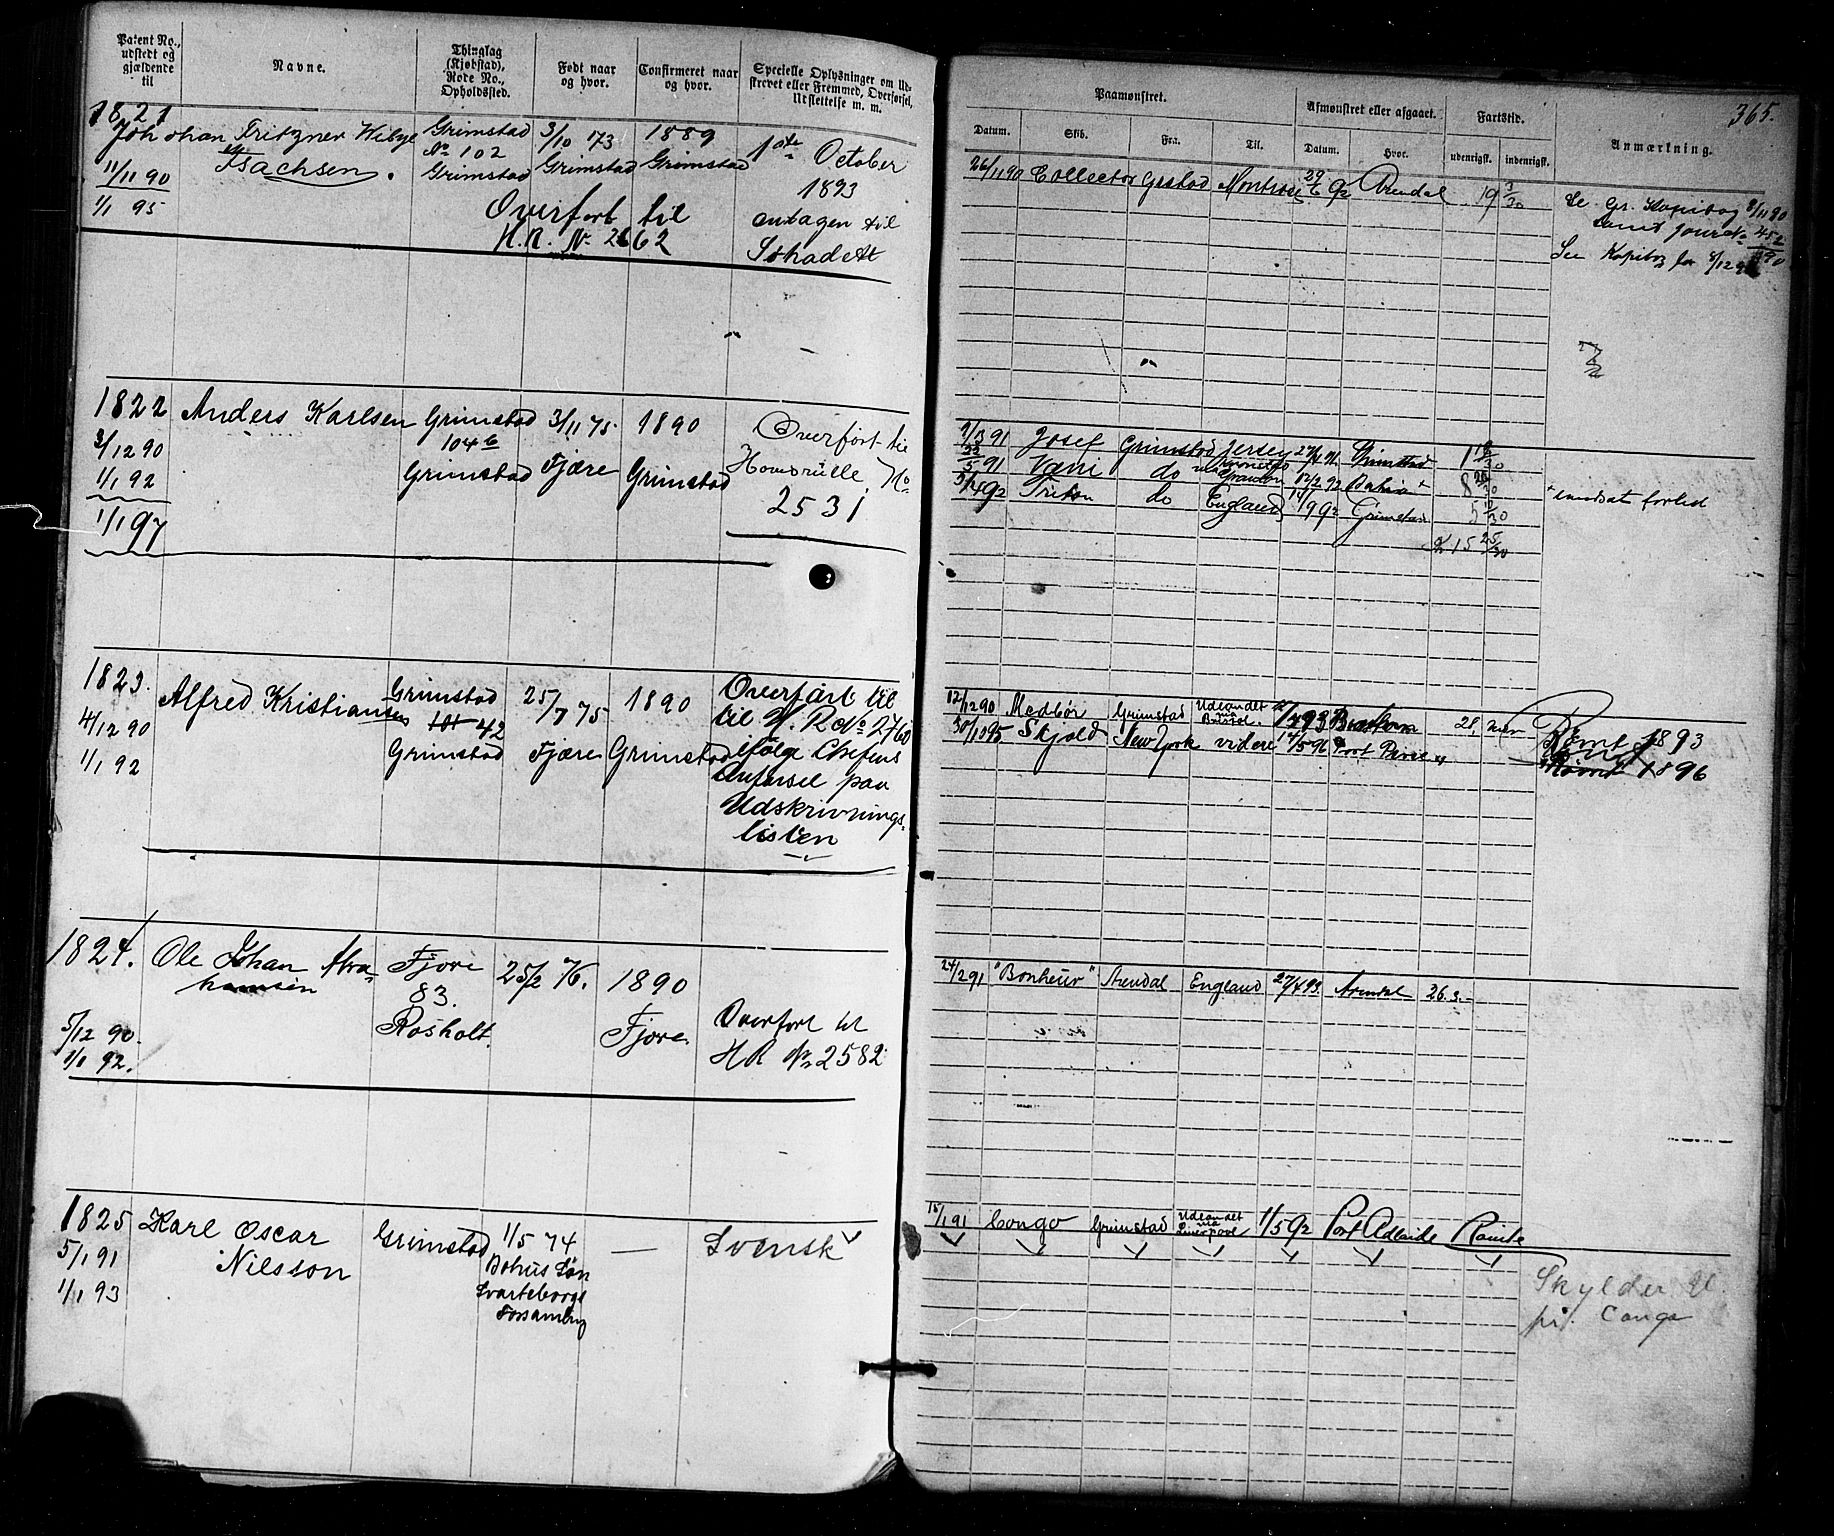 Patent No., udstedt og gjældende til
Navne.
Thinglag (Kjøbstad), Rode No., Opholdssted.
Født naar og hvor.
Confirmeret naar og hvor.
Specielle Oplysninger om Udskrevet eller Fremmed, Overførsel, Udslettelse m. m.
1821
Johan Fritzner Wibye
Isachsen.
11/11 90
1/1 95
Grimstad
No 102
Grimstad
3/10 73
Grimstad
1889
Grimstad
1ste October
1893
antagen til
Overført til
H.R. No 2662
1822
Anders Karlsen
3/12 90
1/1 92
1/1 97
Grimstad
104 b
Grimstad
3/11 75
Fjære
1890
Grimstad
Overført til
Hovedrulle No
2531
1823.
Alfred Kristiansen
4/12 90
1/1 92
Grimstad
101 42
Grimstad
25/7 75
Fjære
1890
Grimstad
Overført til
til H. R No 2760
ifølge Chefens
Anførsel paa
Udskrivnings-
listen
1824.
Ole Johan Abra-
hamsen
5/12 90.
1/1 92.
Fjore
83.
Rosholt.
25/2 76.
1890
Fjore
Overfort til
HR No 2582
1825
Karl Oscar
Nilsson
5/1 91
1/1 93
Grimstad
1/5 74
Bohus Län
Svarteborgs
Forsamling
—
Svensk
365.
Paamønstret.
Afmønstret eller afgaaet.
Fartstid.
Anmærkning.
Datum.
Skib.
Fra.
Til.
Datum.
Hvor.
udenrigsk.
indenrigsk.
26/11 90 Collector Grstad Montrose 29/6 92 Arendal 19 3/30
Se Gr. Kopibog 8/11 90
samt Jour No 452
See Kopibog for 8/12 90
7/3 91 Josef Grimstad Jersey Grimstad
22/5 91 Væni do 12/2 92 Bahia +
5/4 92 Triton do England 14/9 92 Grimstad
15 25/30
+ innsat forled
12/12 90 Medbør Grimstad Udlandet
30/10 95 Skjold New York videre 14/5 96 Port Pirie
Rømt 1893
Rømt 1896
24/2 91 "Bonheur" Arendal England 27/4 93. Arendal 26.3.
15/1 91 Congo Grimstad Udlandet via Liverpool 1/5 92 Port Adelaide Rømte
Skylder
pr. Congo